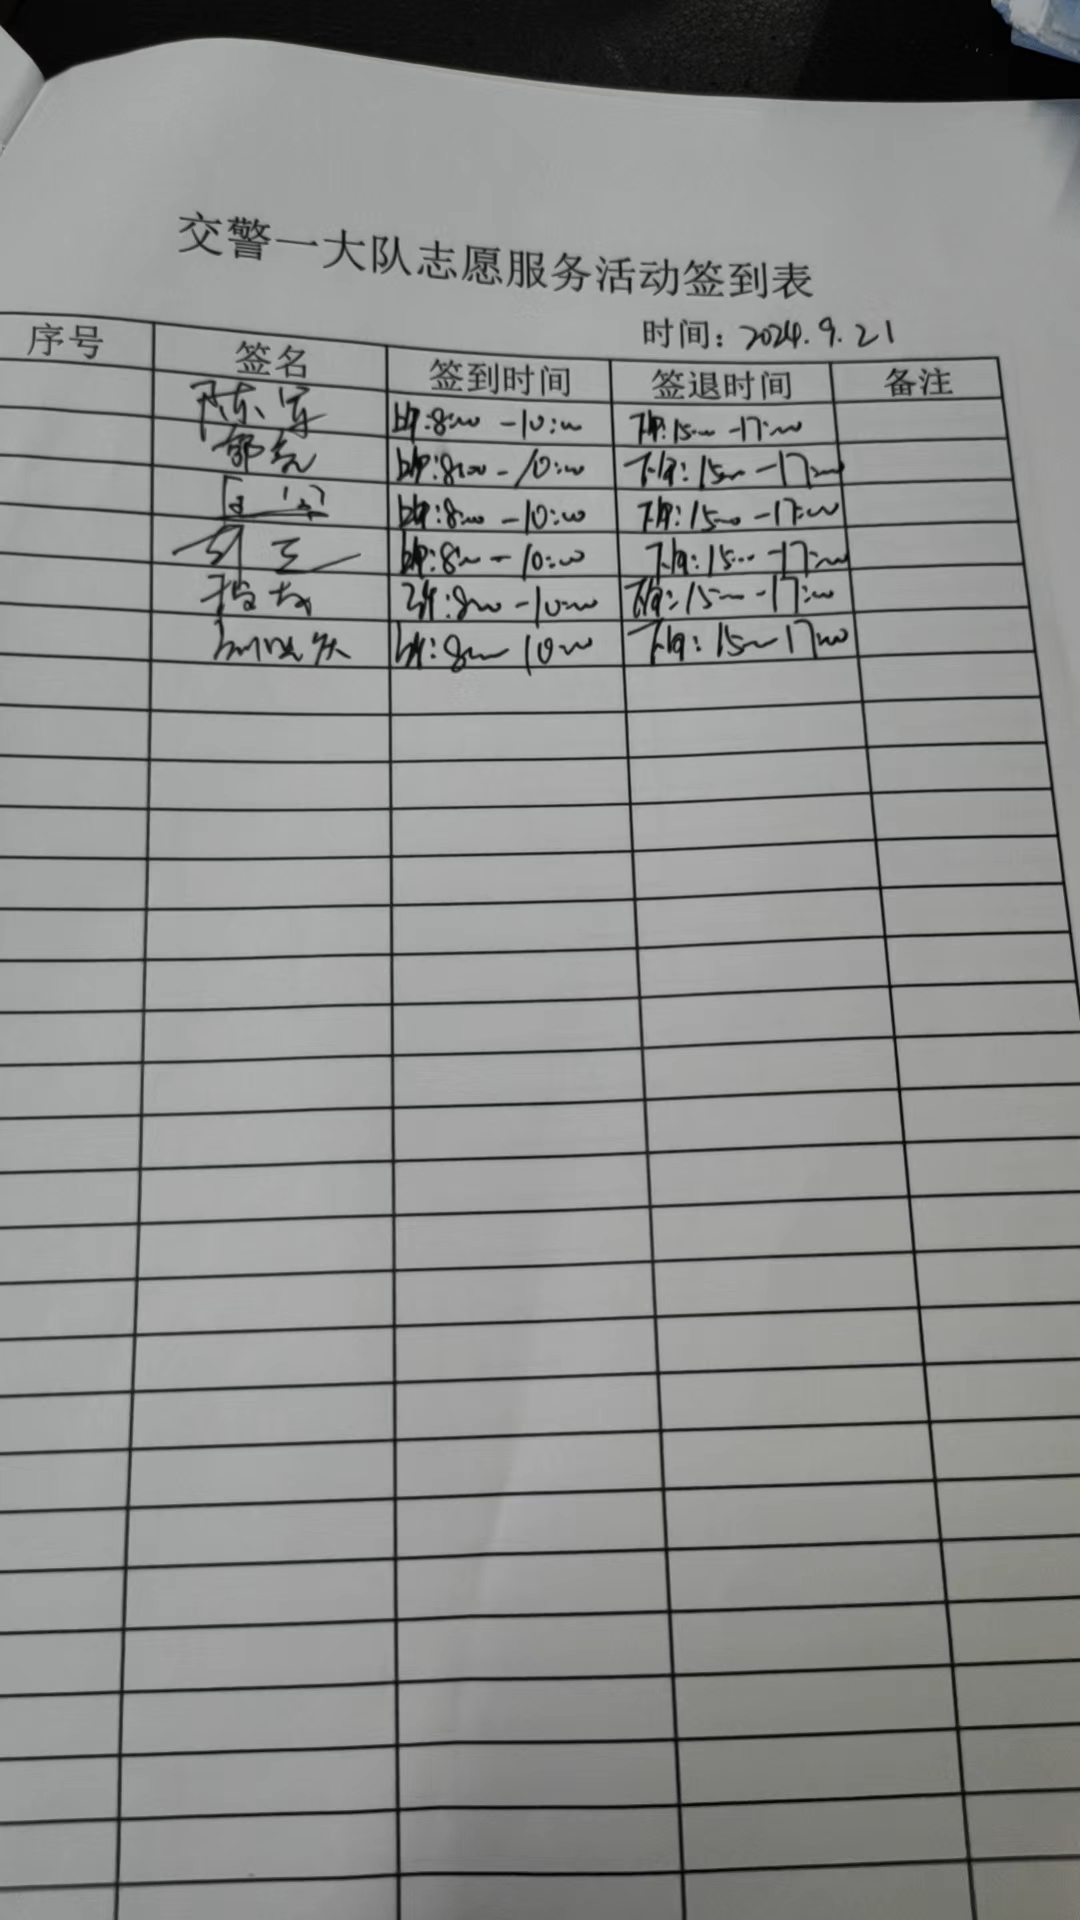 交警一大队志愿服务活动签到表
时间：2024.9.21
序号 签名 签到时间 签退时间 备注
陈军 上午:8:00-10:00 下午:15:00-17:00
郭亮 上午:8:00-10:00 下午:15:00-17:00
上午:8:00-10:00 下午:15:00-17:00
上午:8:00-10:00 下午:15:00-17:00
上午:8:00-10:00 下午:15:00-17:00
上午:8:00-10:00 下午:15:00-17:00